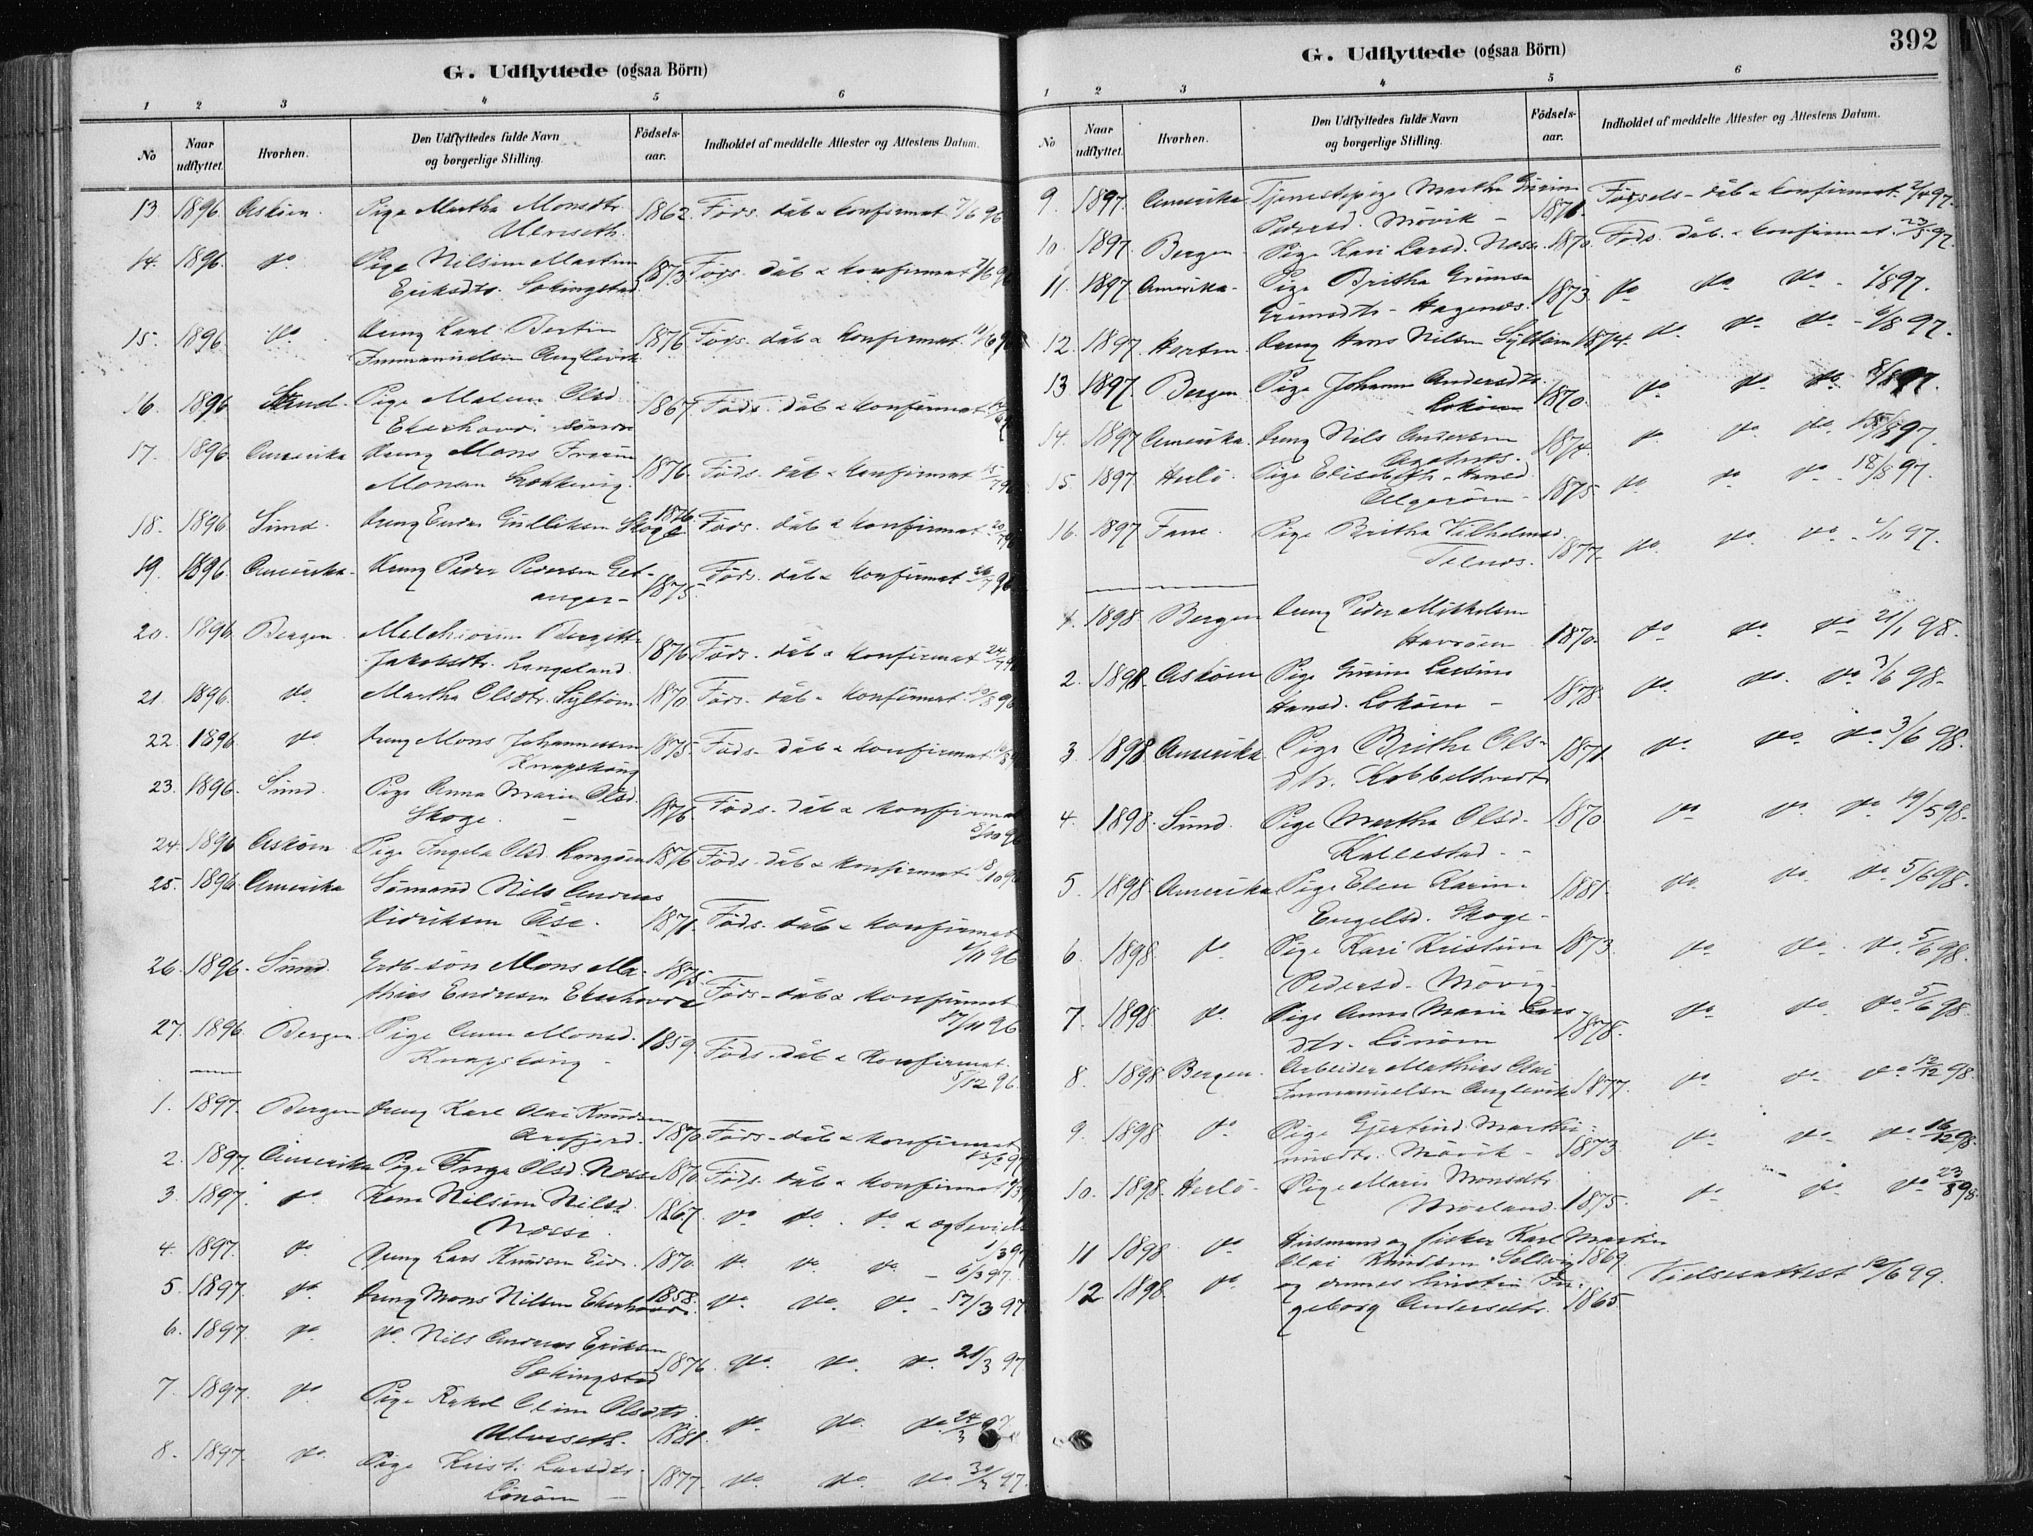 G. Udflyttede (ogsaa Börn)
1 2 3 4 5 6
No Naar udflyttet. Hvorhen. Den Udflyttedes fulde Navn og borgerlige Stilling. Födsels-aar. Indholdet af meddelte Attester og Attestens Datum.
13. 1896. Asköen. Pige Martha Monsdtr. 1862. Föds. dåb & konfirmat. 7/6 96
Ulveseth.
14. 1896. do Pige Nilsine Martine 1873. Föds. dåb & konfirmat. 7/6 96
Eriksdtr. Sekingstad
15. 1896. do. Ung Karl Bertin 1876. Föds. dåb & konfirmat. 96
Immanuelsen Anglevik
16. 1896 Sund. Pige Malene Olsd. 1867. Föds. dåb & konfirmat
Ekerhovd
17. 1896. Amerika Ung Mons
Monsen 1876. Föds. dåb & konfirmat 15/7 96
18. 1896. Sund. Ung Endre Gulliksen Skoge 1876. Föds. dåb & konfirmat 20/7 96
19. 1896. Amerika. Ung Peder Pedersen Get-
anger 1875. Föds. dåb & konfirmat 96
20. 1896. Bergen. Melchiorine Bergitte
Jakobsdtr. Langeland 1876. Föds. dåb & konfirmat 24/7
21. 1896. do Martha Olsdtr. Syltöen. 1870. Föds. dåb & konfirmat. 96
22. 1896. do. Ung Mons Johannessen 1875. Föds. dåb & konfirmat
Knapskog
23. 1896. Sund. Pige Anna Marie Olsd.
Skoge. 1876. Föds. dåb & konfirmat
8/10 96
24. 1896 Asköen Pige Ingela Olsd. 1876. Föds. dåb & konfirmat. 8/10 96
25. 1896. Amerika Sömand Nils Andreas
Didriksen Åse. 1871. Föds. dåb & konfirmat
/11 96
26. 1896. Sund. Mons Ma- 1875.
thias Endresen Ekerhovd Föds. dåb & konfirmat
17/11 96
27. 1896. Bergen. Pige Anne Monsd. 1859. Föds. dåb & konfirmat.
Knapskog 5/12 96.
1. 1897. Bergen Ung Karl Olai Knudsen
Arefjord. 1870. Föds. dåb & konfirmat
2. 1897. Amerika Pige Inga Olsd. Nesse 1870. Föds. dåb & konfirmat
3. 1897. do Kone Nilsine Nilsd. 1867. do do. do & ægtevielse
Nesse.
4. 1897. do Ung Lars Knudsen Eide. 1870. do do. do. - 6/3 97.
5. 1897. do. Ung Mons Nilsen Ekerhovd. 1858. do. do. do. - 17/3 97
6. 1897. do do. Nils Andreas Eriksen
Sekingstad 1876. do. do. do. 21/3 97
7. 1897. do Pige Rakel Oline Olsdtr.
Ulveseth. 1881. do. do. do. 24/3 97.
8. 1897. do. Pige Larsdtr.
Lönöen 1877. do. do. do 97.
392
G. Udflyttede (ogsaa Börn)
1 2 3 4 5 6
No Naar udflyttet. Hvorhen. Den Udflyttedes fulde Navn og borgerlige Stilling. Födsels-aar. Indholdet af meddelte Attester og Attestens Datum.
9. 1897. Amerika Tjenestepige Martha
Pedersd. Mövik - 1876. Födsels- dåb & konfirmat. 2/4 97.
10. 1897. Bergen Pige Kari Larsd. Nesse. 1870. Föds. dåb. & konfirmat. 23/5 97.
11. 1897. Amerika. Pige Britha
Hagenes. 1873. do do. do. - 1897.
12. 1897. Horten. Ung Hans Nilsen Syltöen 1874. do. do. do. - 6/8 97.
13 1897. Bergen Pige Johanne Andersdtr.
Loköen 1870. do do. do. 97.
14. 1897 Amerika. Ung Nils Andersen 1874. do do. do. 97.
15. 1897 Herlö. Pige Elisabeth Hansd.
Algeröen. 1875. do do do. 18/8 97.
16. 1897 Fane. Pige Britha Vilhelmsd.
1877. do. do. do. 97.
1. 1898 Bergen Ung Peder Mikkelsen
1870. do do. do 21/1 98.
2. 1898. Asköen Pige
Hansd. Loköen - 1878. do. do. do 3/6 98.
3 1898 Amerika Pige Brithe Ols-
dtr. Kobbeltvedt 1871 do. do. do. 3/6 98.
4. 1898. Sund. Pige Martha Olsd. 1870 do do. do. 19/5 98.
Kallestad.
5. 1898. Amerika Pige Elen Karin 1881. do. do. do. 5/6 98.
Engelsd. Skoge.
6. 1898. do Pige Kari Kristine 1873. do do. do. 5/6 98.
Pedersd. Mövig
7. 1898 do Pige Anna Marie Lars-
dtr. Lönöen 1878. do do. do. 5/6 98.
8. 1898. Bergen. Arbeider Mathias Olai
Immanuelsen Anglevik 1877. do do. do. 12/12 98.
9. 1898 do Pige Gjertrud
Mövik. 1873. do do. do 16/12 98.
10. 1898. Herlö Pige Marie Monsdtr.
1875. do do. do. 23/8 98.
11 1898. do Husmand og fisker Karl Martin
Olai Knudsen Solsvig 1869.
12 1898. do. og dennes hustru In-
geborg Andersdtr. 1865 Vielsesattest 12/6 99.